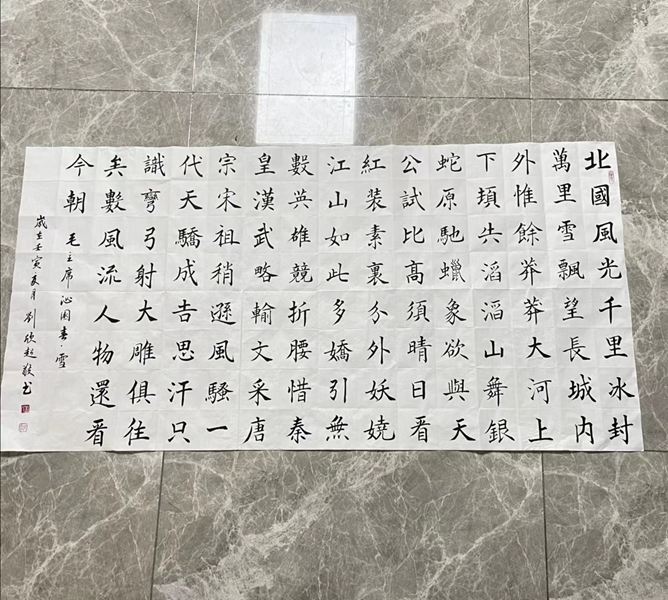 北國風光千里冰封
萬里雪飄望長城内
外惟餘莽莽大河上
下頓失滔滔山舞銀
蛇原馳蠟象欲與天
公試比高須晴日看
紅装素裹分外妖嬈
江山如此多嬌引無
數英雄競折腰惜秦
皇漢武略輸文采唐
宗宋祖稍遜風騷一
代天驕成吉思汗只
識彎弓射大雕俱往
矣數風流人物還看
今朝
毛主席沁园春·雪
歲在壬寅夏月劉欣超敬书